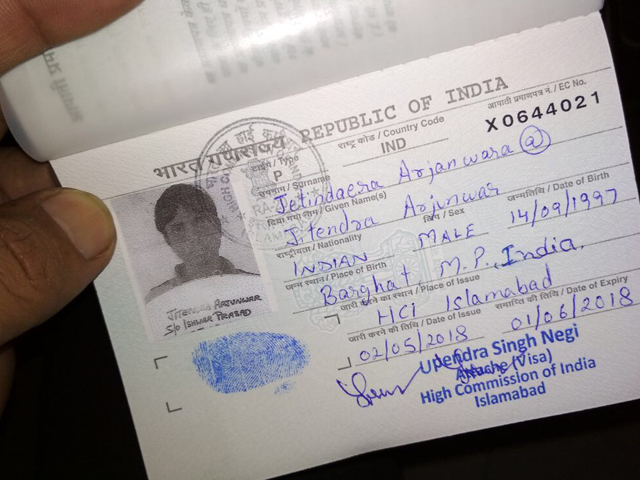 भारत गणराज्य REPUBLIC OF INDIA
आपाती प्रमाणपत्र नं. / EC No.
X0644021
टाइप / Type
P
राष्ट्र कोड / Country Code
IND
उपनाम / Surname
Jetindaera Arjanwara @
दिया गया नाम / Given Name(s)
Jitendra Arjunwar
राष्ट्रीयता / Nationality
INDIAN
लिंग / Sex
MALE
जन्मतिथि / Date of Birth
14/09/1997
जन्म स्थान / Place of Birth
Barghat, M.P., India.
जारी करने का स्थान / Place of Issue
HCI Islamabad
जारी करने की तिथि / Date of Issue
02/05/2018
समाप्ति की तिथि / Date of Expiry
01/06/2018
JITENDRA ARJUNWAR
S/O ISHWAR PRASAD
Upendra Singh Negi
Attache (Visa)
High Commission of India
Islamabad